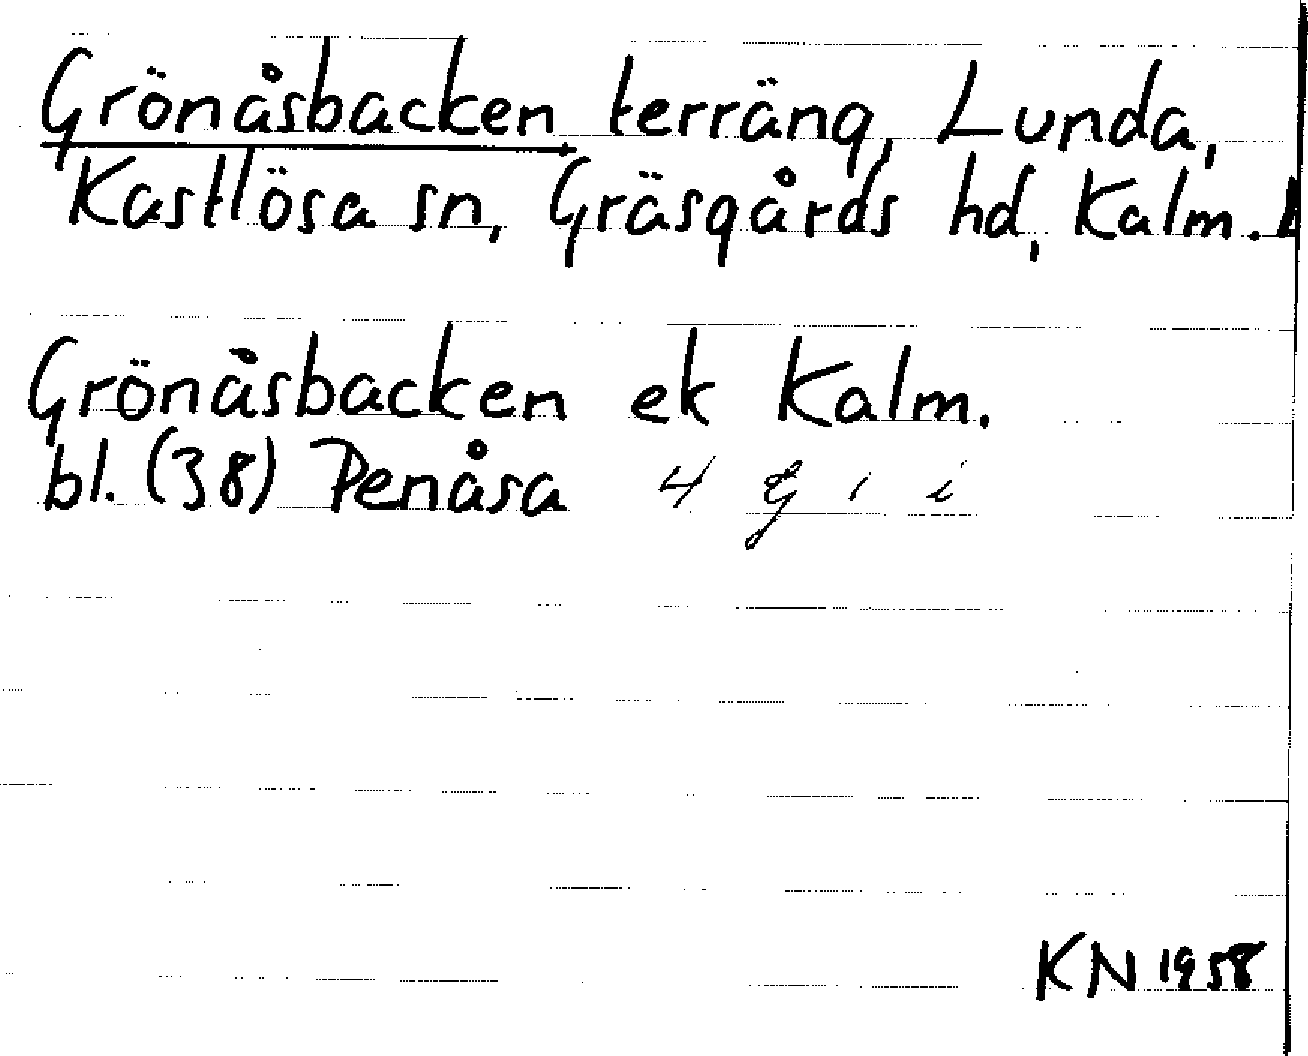 Grönåsbacken terräng, Lunda,
Kastlösa sn, Gräsgårds hd, Kalm. L
Grönåsbacken ek Kalm.
bl. (38) Penåsa 4 G 1 i
KN 1958